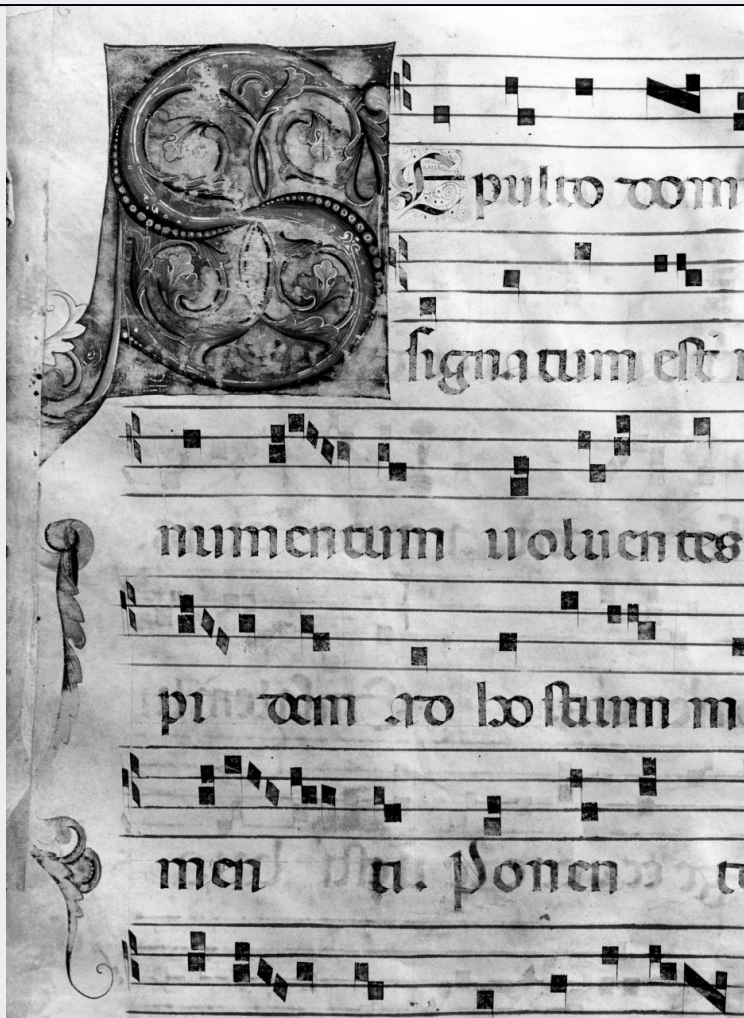 SEpulto dom
signatum est
numentum uoluentes
pi dem ad hostium m
men ti. Ponen te